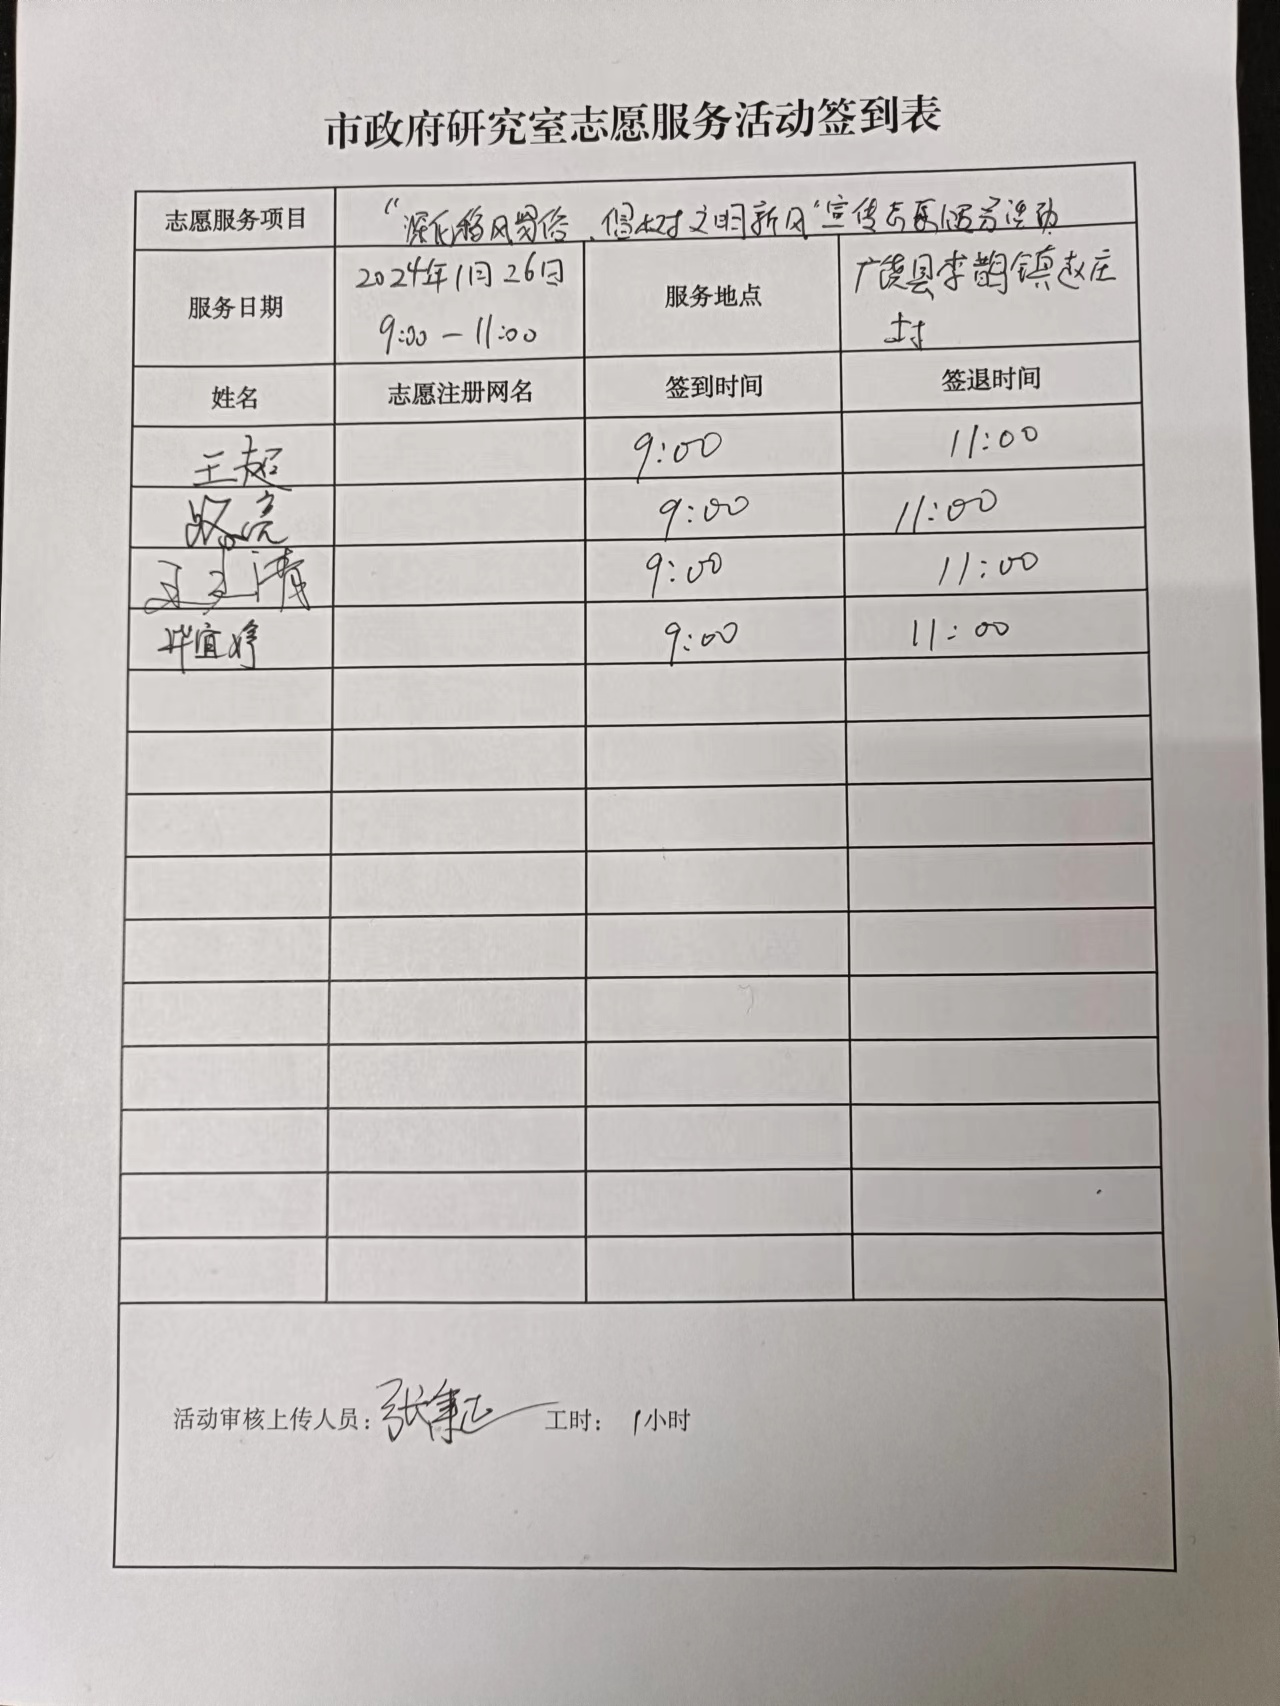 市政府研究室志愿服务活动签到表
志愿服务项目 “深化移风易俗、倡树文明新风”宣传志愿服务活动
服务日期 2024年1月26日 9:00-11:00 服务地点 广饶县李鹊镇赵庄村
姓名 志愿注册网名 签到时间 签退时间
王超 9:00 11:00
路亮 9:00 11:00
9:00 11:00
毕宜婷 9:00 11:00
活动审核上传人员: 张 工时: 1小时